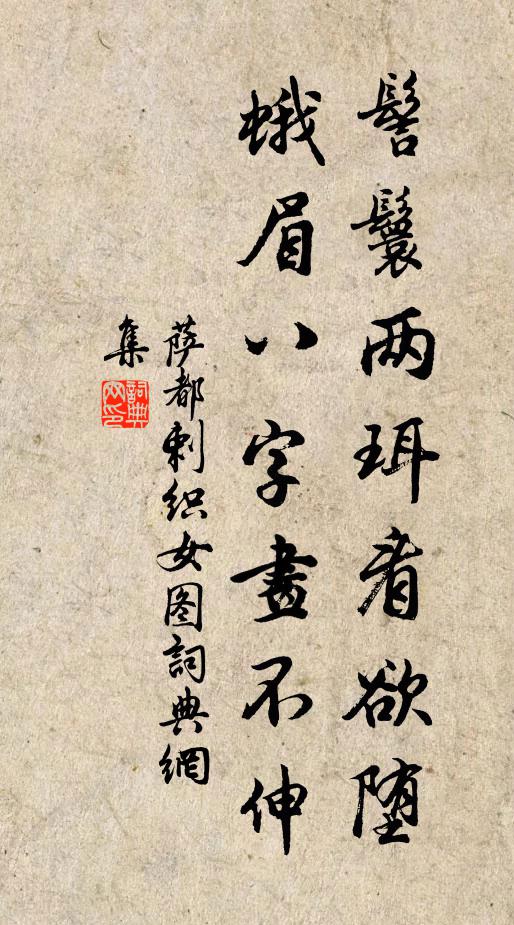 髻鬟两珥看欲堕
蛾眉八字畫不伸
萨都剌织女图詞典網
集
詞典
网印